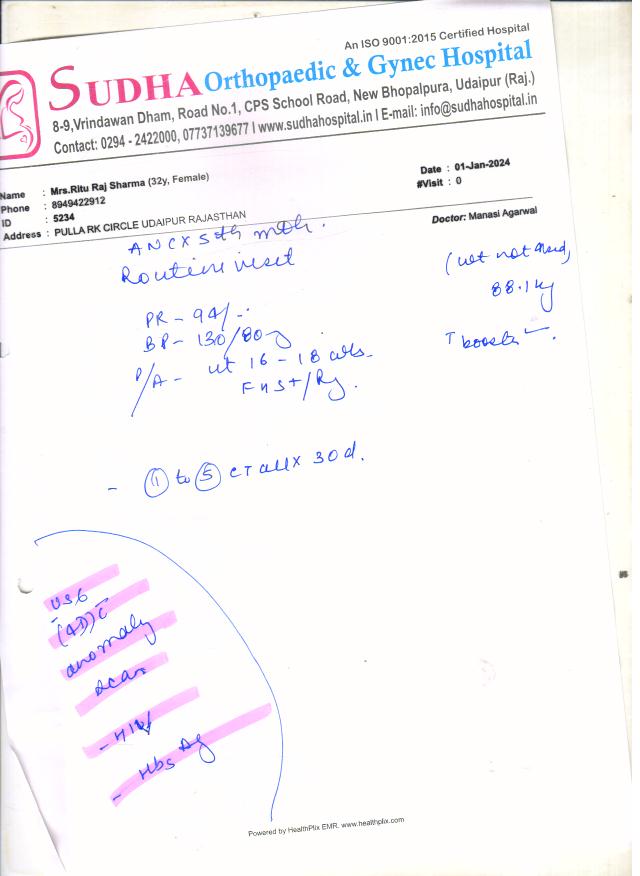 An ISO 9001:2015 Certified Hospital
SUDHA Orthopaedic & Gynec Hospital
8-9,Vrindawan Dham, Road No.1, CPS School Road, New Bhopalpura, Udaipur (Raj.)
Contact: 0294 - 2422000, 07737139677 I www.sudhahospital.in I E-mail: info@sudhahospital.in
Name : Mrs.Ritu Raj Sharma (32y, Female)
Date : 01-Jan-2024
Phone : 8949422912
#Visit : 0
ID : 5234
Address : PULLA RK CIRCLE UDAIPUR RAJASTHAN
Doctor: Manasi Agarwal
ANC x 5th mth.
Routine visit
88.1 kg
PR - 94/
BP - 130/80
T booster
P/A - ut 16 - 18 wks
FHS+/Rg.
- 1 to 5 CT all x 30 d.
USG
(4D) c
anomaly
scan
- HIV
- HbsAg
Powered by HealthPlix EMR. www.healthplix.com